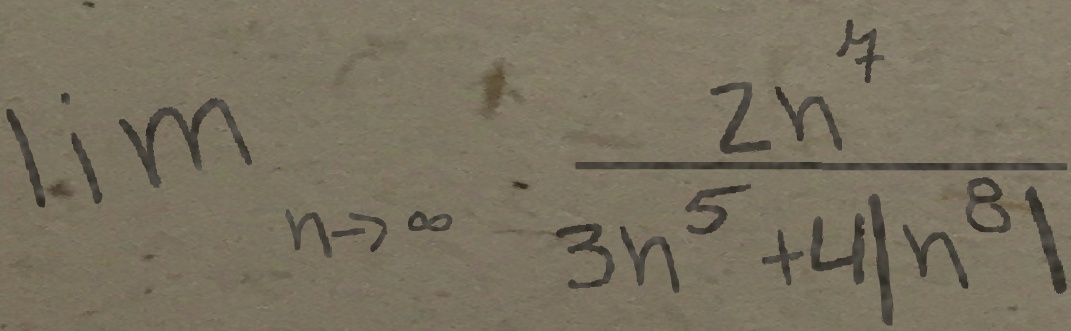 \lim_{n \to \infty} \frac{2n^7}{3n^5+4|n^8|}